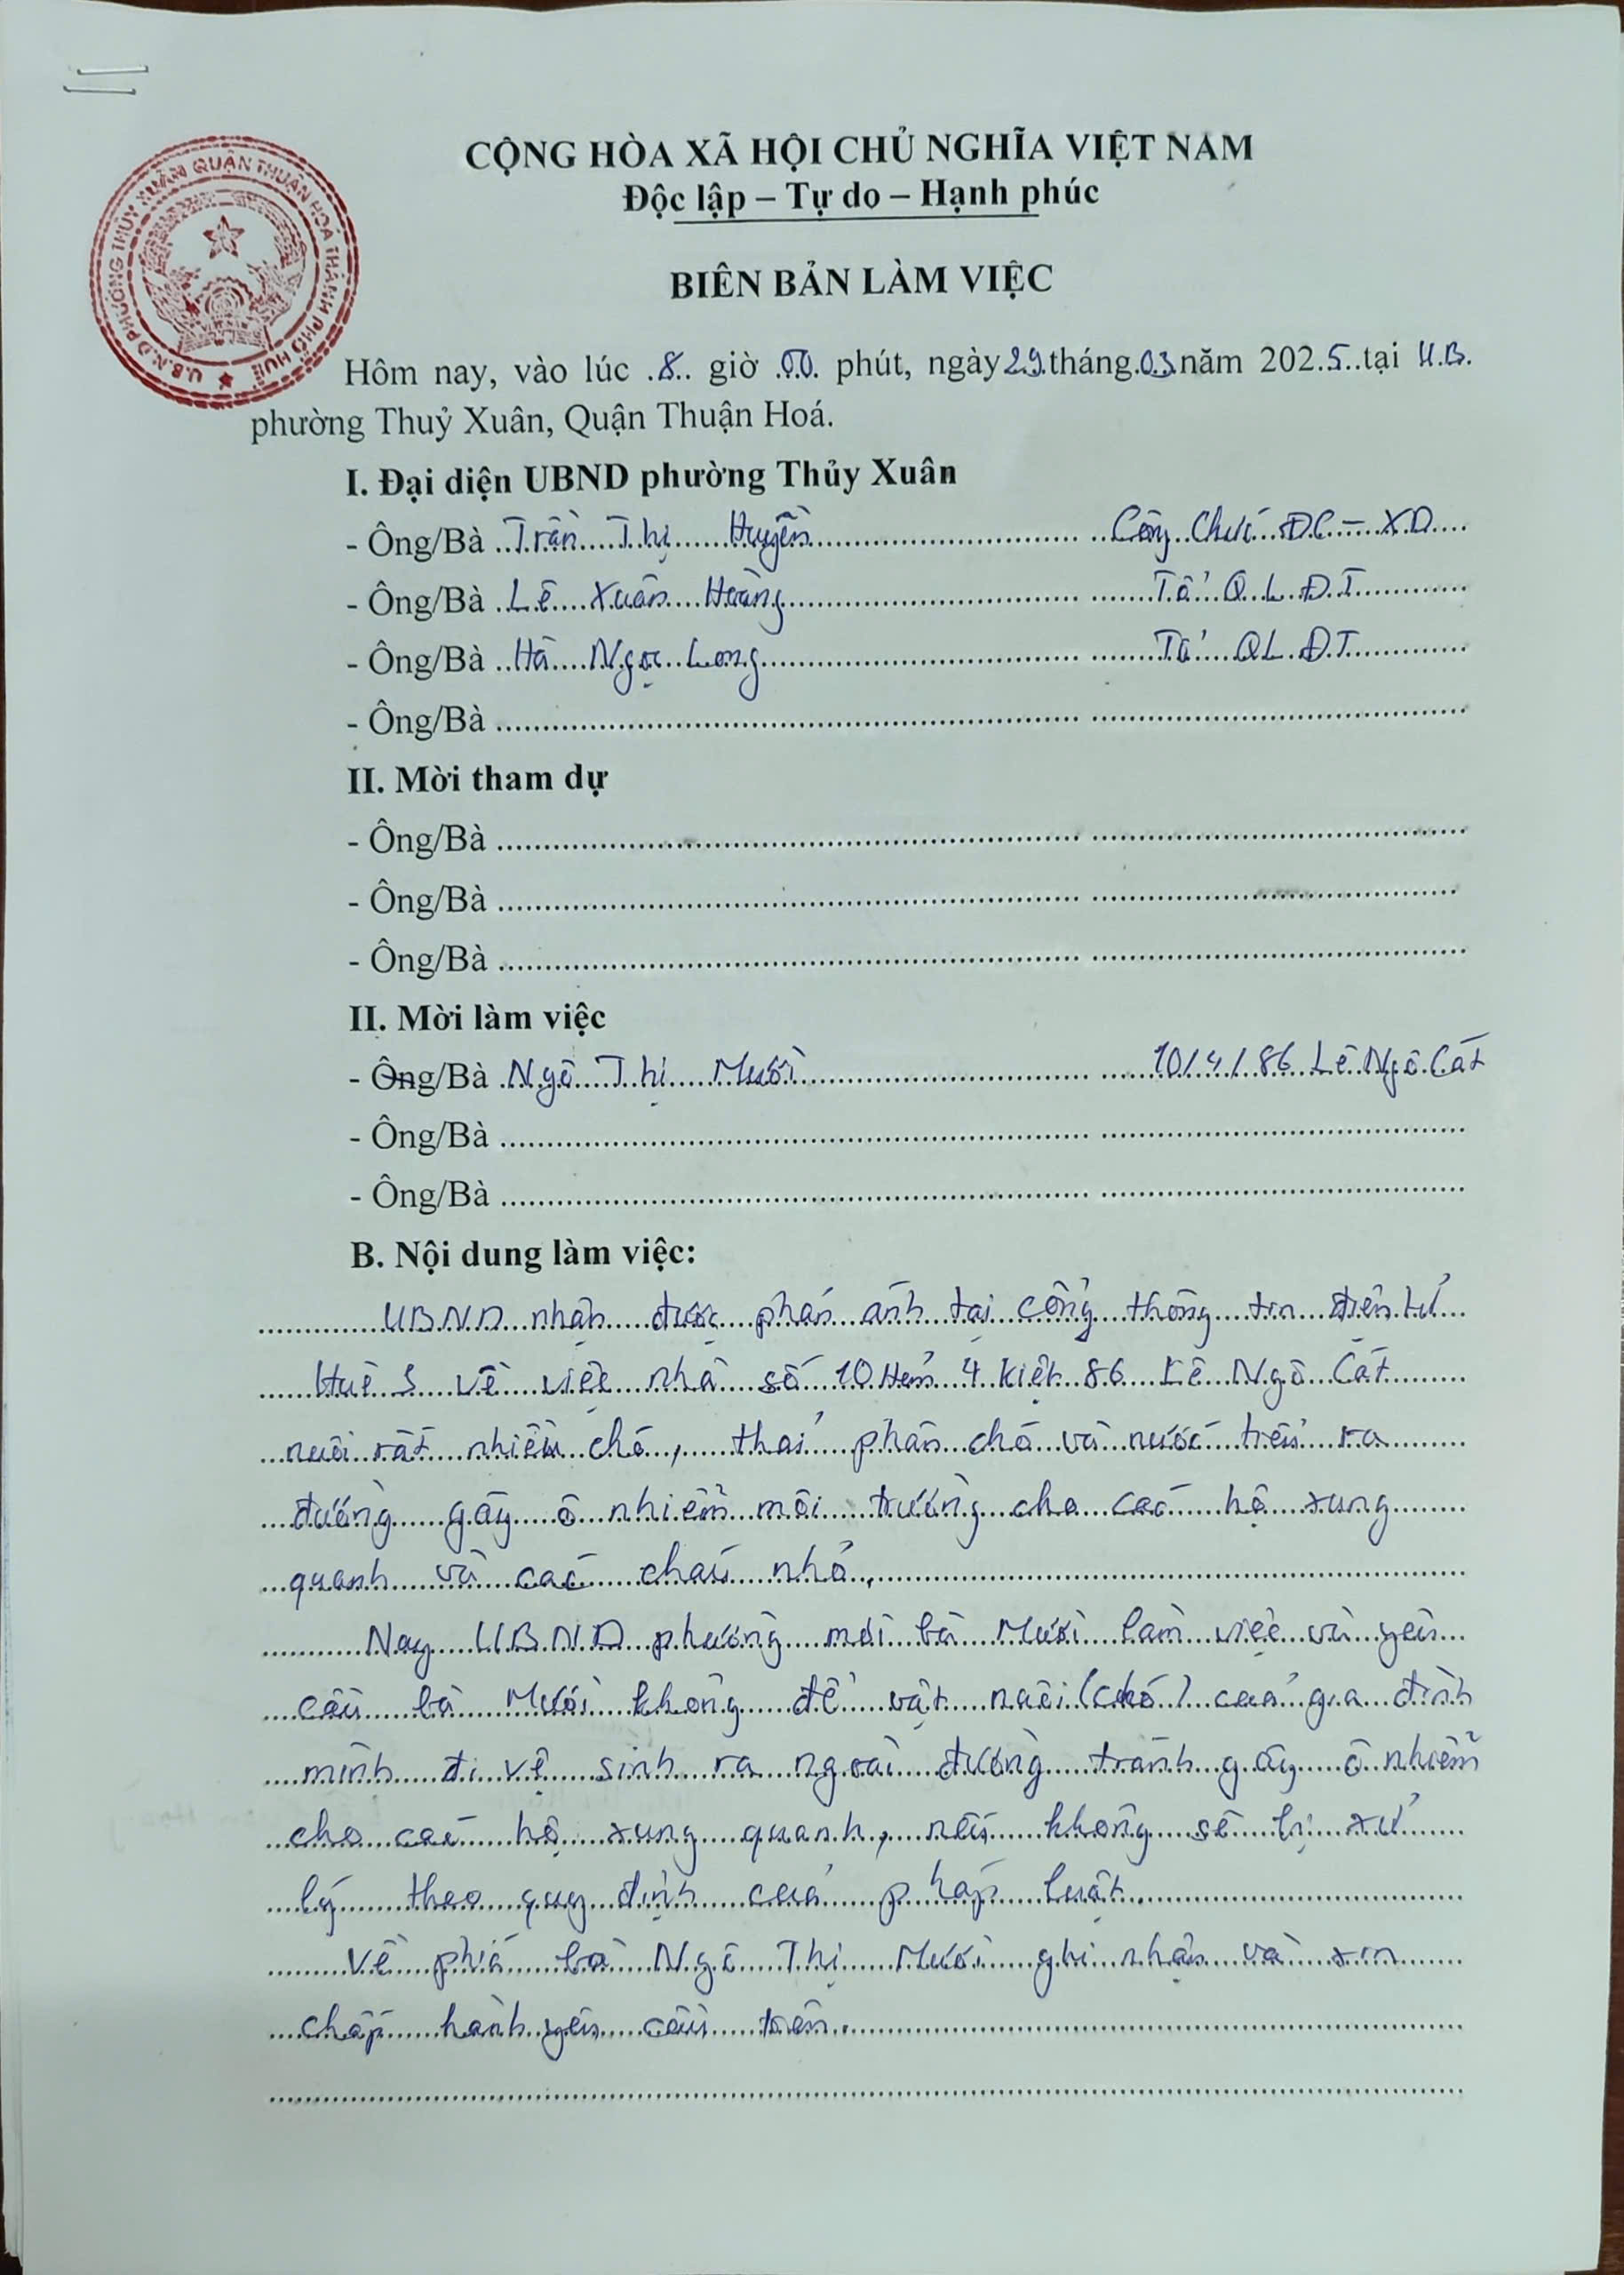 CỘNG HÒA XÃ HỘI CHỦ NGHĨA VIỆT NAM
Độc lập – Tự do – Hạnh phúc
U.B.N.D PHƯỜNG THỦY XUÂN QUẬN THUẬN HOÁ THÀNH PHỐ HUẾ
BIÊN BẢN LÀM VIỆC
Hôm nay, vào lúc 8 giờ 00 phút, ngày 29 tháng 03 năm 2025 tại U.B.
phường Thuỷ Xuân, Quận Thuận Hoá.
I. Đại diện UBND phường Thủy Xuân
- Ông/Bà Trần Thị Huyền Công Chức ĐC – XD
- Ông/Bà Lê Xuân Hoàng Tổ QLĐT
- Ông/Bà Hà Ngọc Long Tổ QLĐT
- Ông/Bà
II. Mời tham dự
- Ông/Bà
- Ông/Bà
- Ông/Bà
II. Mời làm việc
- Ông/Bà Ngô Thị Mười 10/4/86 Lê Ngô Cát
- Ông/Bà
- Ông/Bà
B. Nội dung làm việc:
UBND nhận được phản ánh tại cổng thông tin điện tử
Huế S về việc nhà số 10 Hẻm 4 Kiệt 86 Lê Ngô Cát
nuôi rất nhiều chó, thải phân chó và nước tiểu ra
đường gây ô nhiễm môi trường cho các hộ xung
quanh và các cháu nhỏ,
Nay UBND phường mời bà Mười làm việc và yêu
cầu bà Mười không để vật nuôi (chó) của gia đình
mình đi vệ sinh ra ngoài đường tránh gây ô nhiễm
cho các hộ xung quanh, nếu không sẽ bị xử
lý theo quy định của pháp luật.
Về phía bà Ngô Thị Mười ghi nhận và xin
chấp hành yêu cầu trên.